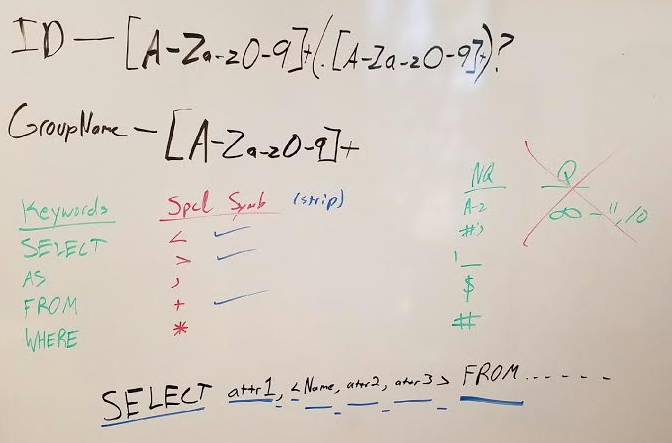 ID — [A-Za-z0-9]+(.[A-Za-z0-9]+)?
GroupName — [A-Za-z0-9]+
Keywords
SELECT
AS
FROM
WHERE
Spcl Symb (strip)
< ✓
> ✓
,
+ ✓
*
NQ
A-z
#'s
' _
$
#
Q
∞ - ", \0
SELECT attr1, <Name, attr2, attr3> FROM......